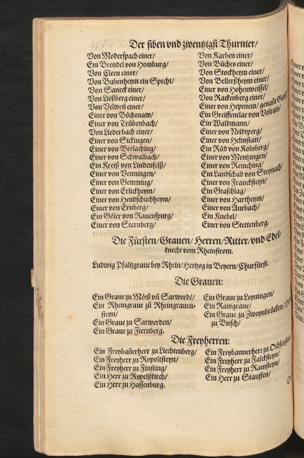 Der siben vnd zwentzigst Thurnier/
Von Moderspach einer/
Ein Brendel von Homburg/
Von Cleen einer/
Von Babenheym ein Specht/
Von Saneck einer/
Von Ließberg einer/
Von Velweil einer/
Einer von Böchenaw/
Einer von Trübenbach/
Von Liederbach einer/
Einer von Sickingen/
Einer von Berlaching/
Einer von Schwalbach/
Ein Kreiß von Lindenfelß/
Einer von Venningen/
Einer von Gemming/
Einer von Erlickheym/
Einer von Hendschuchßheym/
Einer von Ernberg/
Ein Göler von Rauenspurg/
Einer von Sternberg.
Von Karben einer/
Von Büches einer/
Von Stockheym einer/
Von Bellerßheym einer/
Einer von Hohenweissel/
Von Rackenberg einer/
Einer von Heppenen/ genañt
Ein Greiffenclae von
Ein Waldmann/
Einer von Neidperg/
Einer von Helmstatt/
Ein Rüd von Kolnberg/
Einer von Mentzingen/
Einer von Remching/
Ein Landschad von Steynach/
Einer von Francksteyn/
Ein Graschlag/
Einer von Hartheym/
Einer von Aurbach/
Ein Knebel/
Einer von Stettenberg.
Die Fürsten/ Grauen/ Herren/ Ritter/ vnd Edel-
knecht vom Rheinstrom.
Ludwig Pfaltzgraue bey Rhein/ Hertzog in Beyern/ Churfürst.
Die Grauen:
Ein Graue zu Mörß vñ Sarwerd/
Ein Rheingraue zů Rheingrauen-
steyn/
Ein Graue zu Sarwerden/
Ein Graue zu Firnenberg.
Ein Graue zu Leyningen/
Ein Rawgraue/
Ein Graue zu Zweynbrücken/
zu Bitsch/
Die Freyherren:
Ein Freyhannerherr zu Liechtenberg/
Ein Freyherr zu Ropoltsteyn/
Ein Freyherr zu Finsting/
Ein Herr zu Ropeltzkirch/
Ein Herr zu Hassenburg.
Ein Freybannerherr zu Ochsensteyn/
Ein Freyherr zu Falckesteyn/
Ein Freyherr zu Ramsteyn/
Ein Herr zu Stauffen/